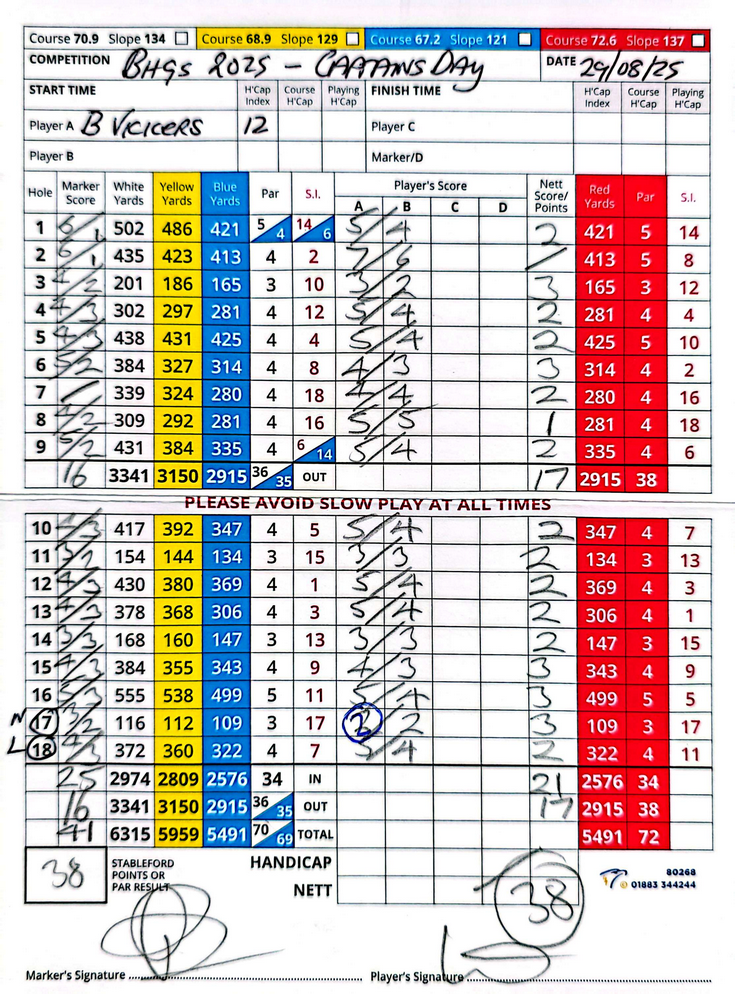 Course 70.9 Slope 134 Course 68.9 Slope 129 Course 67.2 Slope 121 Course 72.6 Slope 137
COMPETITION BHGS 2025 - CAPTAINS DAY DATE 29/08/25
START TIME H'Cap Index Course H'Cap Playing H'Cap FINISH TIME H'Cap Index Course H'Cap Playing H'Cap
Player A B VICICERS 12 Player C
Player B Marker/D
Hole Marker Score White Yards Yellow Yards Blue Yards Par S.I. Player's Score Nett Score/Points Red Yards Par S.I.
A B C D
1 6/1 502 486 421 5/4 14/6 5/4 2 421 5 14
2 6/1 435 423 413 4 2 7/6 / 413 5 8
3 4/2 201 186 165 3 10 3/2 3 165 3 12
4 4/3 302 297 281 4 12 5/4 2 281 4 4
5 4/3 438 431 425 4 4 5/4 2 425 5 10
6 5/2 384 327 314 4 8 4/3 3 314 4 2
7 / 339 324 280 4 18 4/4 2 280 4 16
8 4/2 309 292 281 4 16 5/5 1 281 4 18
9 5/2 431 384 335 4 6/14 5/4 2 335 4 6
16 3341 3150 2915 36/35 OUT 17 2915 38
PLEASE AVOID SLOW PLAY AT ALL TIMES
10 4/3 417 392 347 4 5 5/4 2 347 4 7
11 3/2 154 144 134 3 15 3/3 2 134 3 13
12 4/3 430 380 369 4 1 5/4 2 369 4 3
13 4/3 378 368 306 4 3 5/4 2 306 4 1
14 3/3 168 160 147 3 13 3/3 2 147 3 15
15 4/3 384 355 343 4 9 4/3 3 343 4 9
16 5/3 555 538 499 5 11 5/4 3 499 5 5
N 17 3/2 116 112 109 3 17 2/2 3 109 3 17
L 18 4/3 372 360 322 4 7 5/4 2 322 4 11
25 2974 2809 2576 34 IN 21 2576 34
16 3341 3150 2915 36/35 OUT 17 2915 38
41 6315 5959 5491 70/69 TOTAL 5491 72
38 STABLEFORD POINTS OR PAR RESULT HANDICAP
NETT 38
80268
01883 344244
Marker's Signature Player's Signature